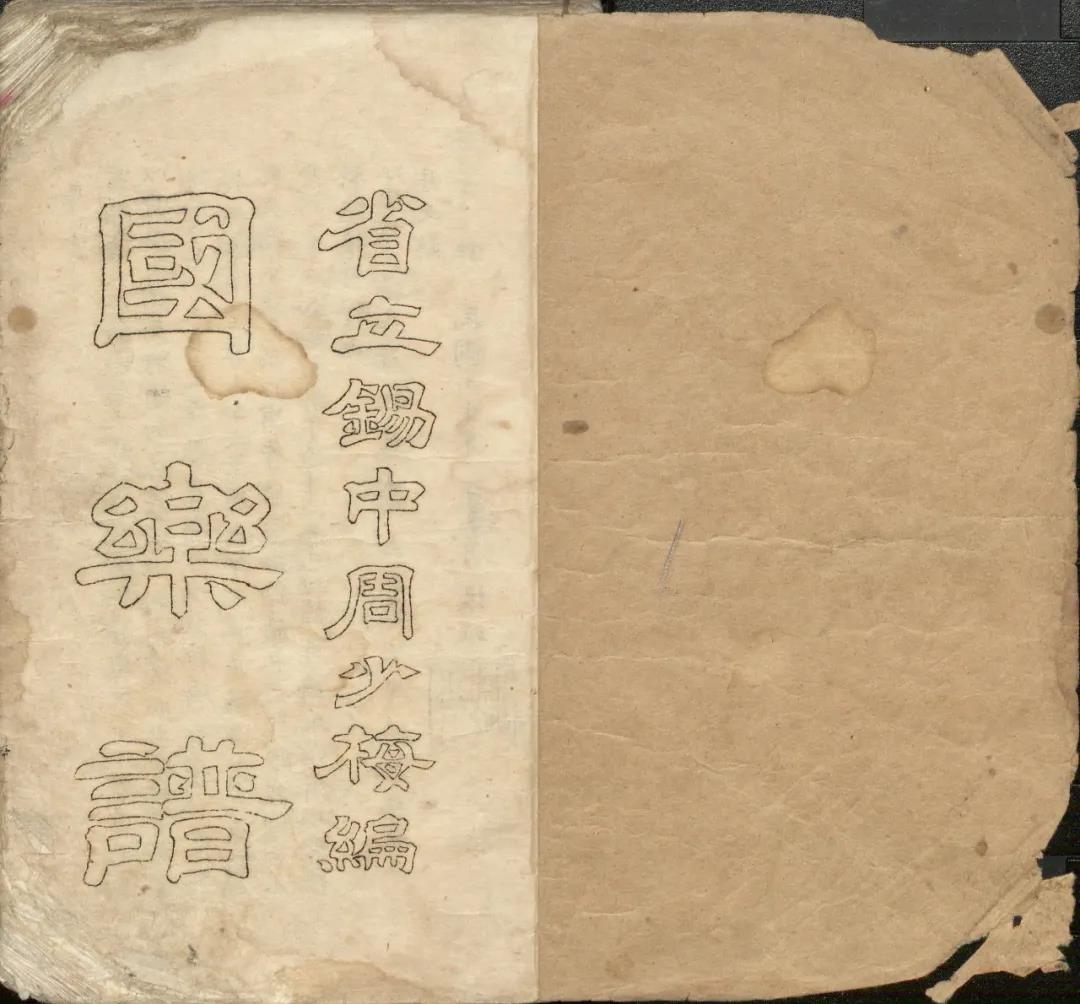 省立錫中周少梅編
國樂譜